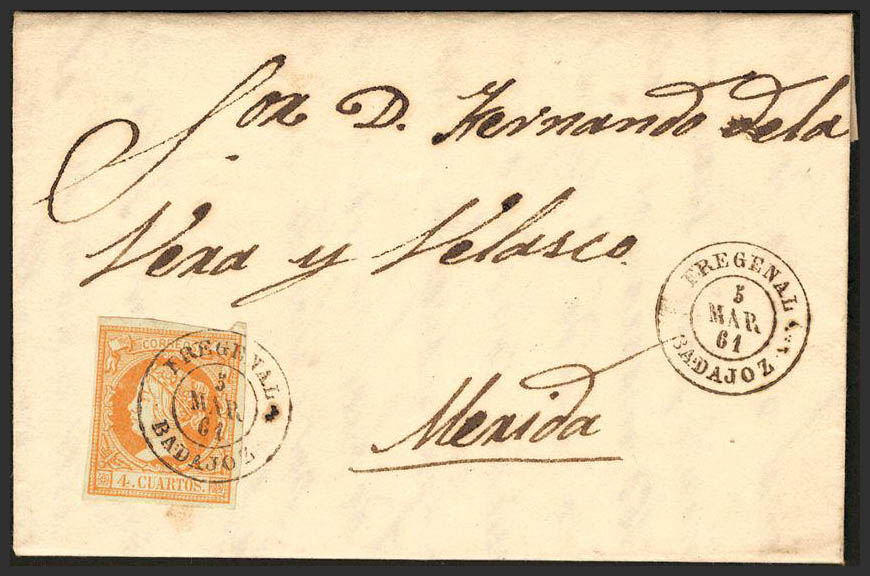 Sor D. Fernando de la
Vera y Velasco
Merida
FREGENAL
5
MAR
61
BADAJOZ
CORREOS
FREGENAL
5
MAR
61
BADAJOZ
4. CUARTOS.